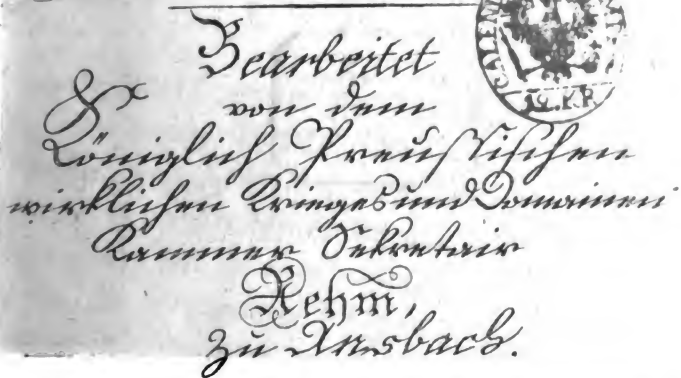 Bearbeitet
von dem
Königlich Preußischen
wirklichen Krieges und Domainen
Kammer Sekretair
Rehm,
zu Ansbach.
CALEND
12.KR.